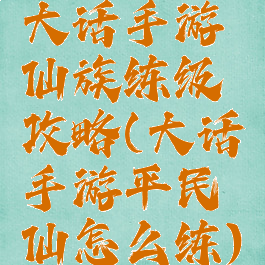 大话手游
仙族练级
攻略(大话
手游平民
仙怎么练)